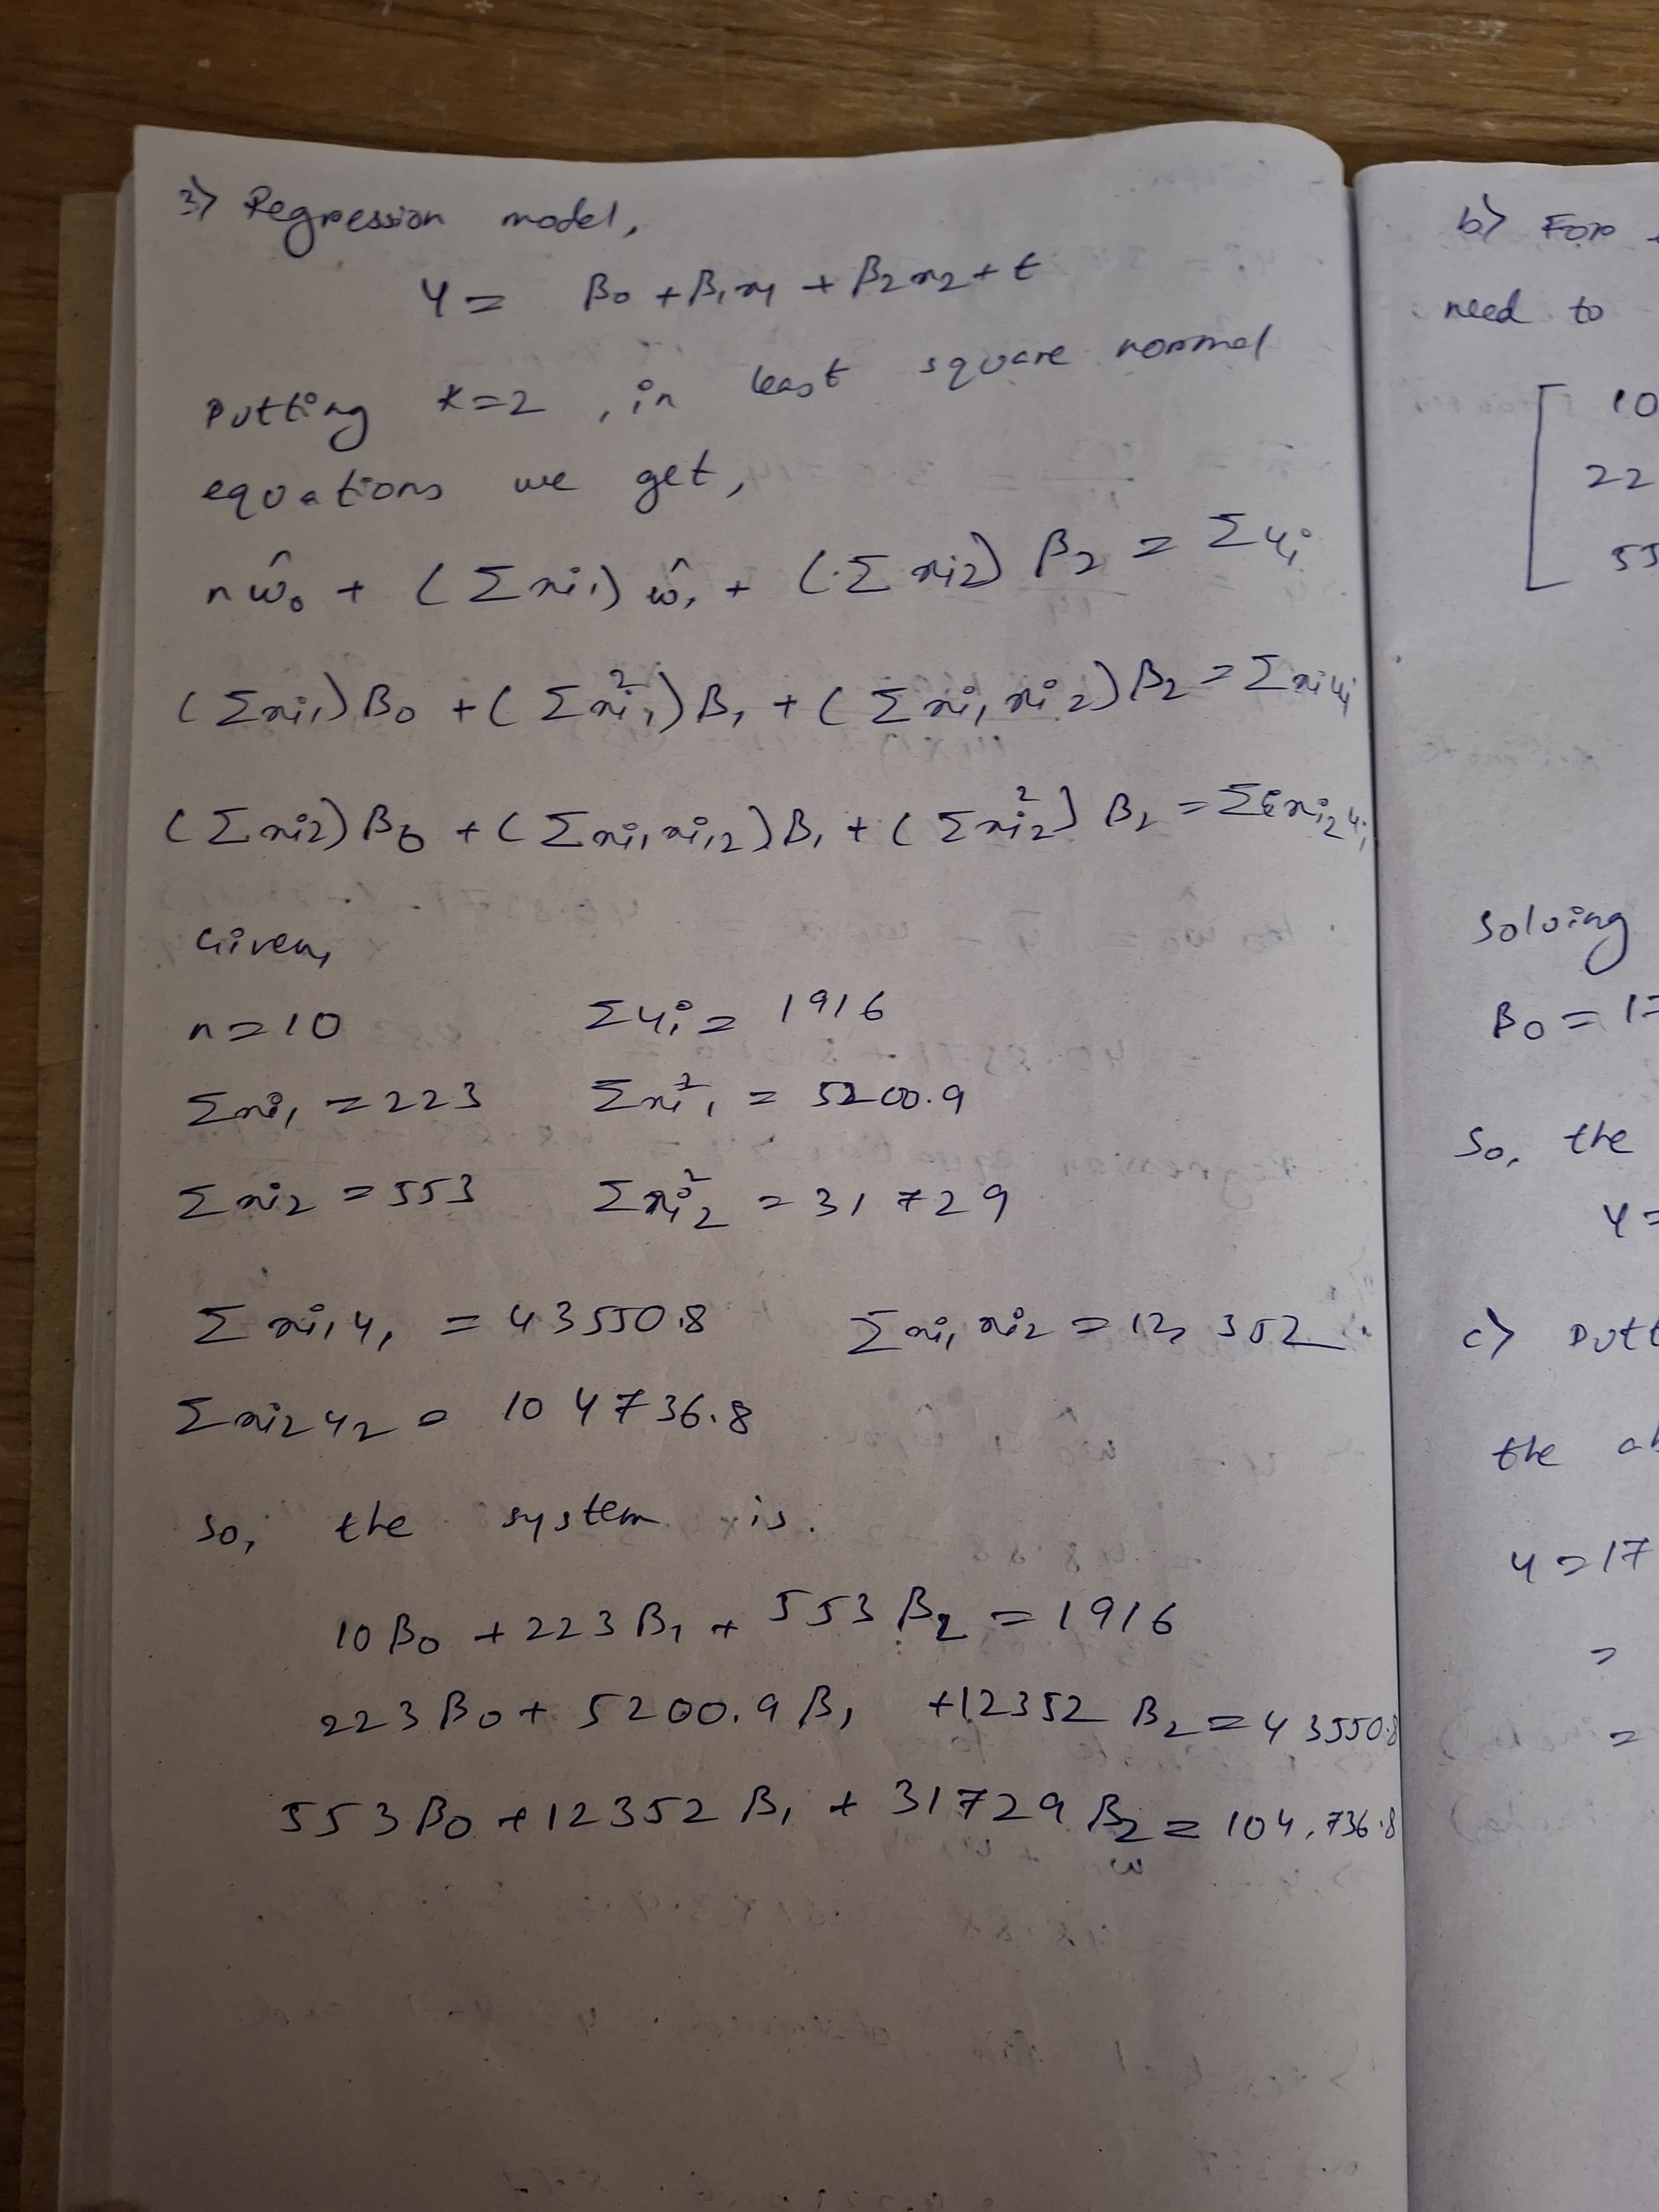 3) Regression model,
Y = β0 + β1x1 + β2x2 + ε
Putting k=2, in least square normal
equations we get,
nŵ0 + (Σxi1) ŵ1 + (Σxi2) β2 = Σyi
(Σxi1)β0 + (Σxi1²)β1 + (Σxi1 xi2)β2 = Σxiyi
(Σxi2)β0 + (Σxi1xi2)β1 + (Σxi2²)β2 = Σxi2yi
Given,
n=10 Σyi = 1916
Σxi1 = 223 Σxi1² = 5200.9
Σxi2 = 553 Σxi2² = 31729
Σxi1y1 = 43550.8 Σxi1xi2 = 12,352
Σxi2y2 = 104736.8
So, the system is.
10β0 + 223β1 + 553β2 = 1916
223β0 + 5200.9β1 + 12352β2 = 43550.8
553β0 + 12352β1 + 31729β2 = 104,736.8
b) For
need to
10
22
55
solving
β0 = 17
So, the
y =
c) Putt
the ab
y = 17
=
=